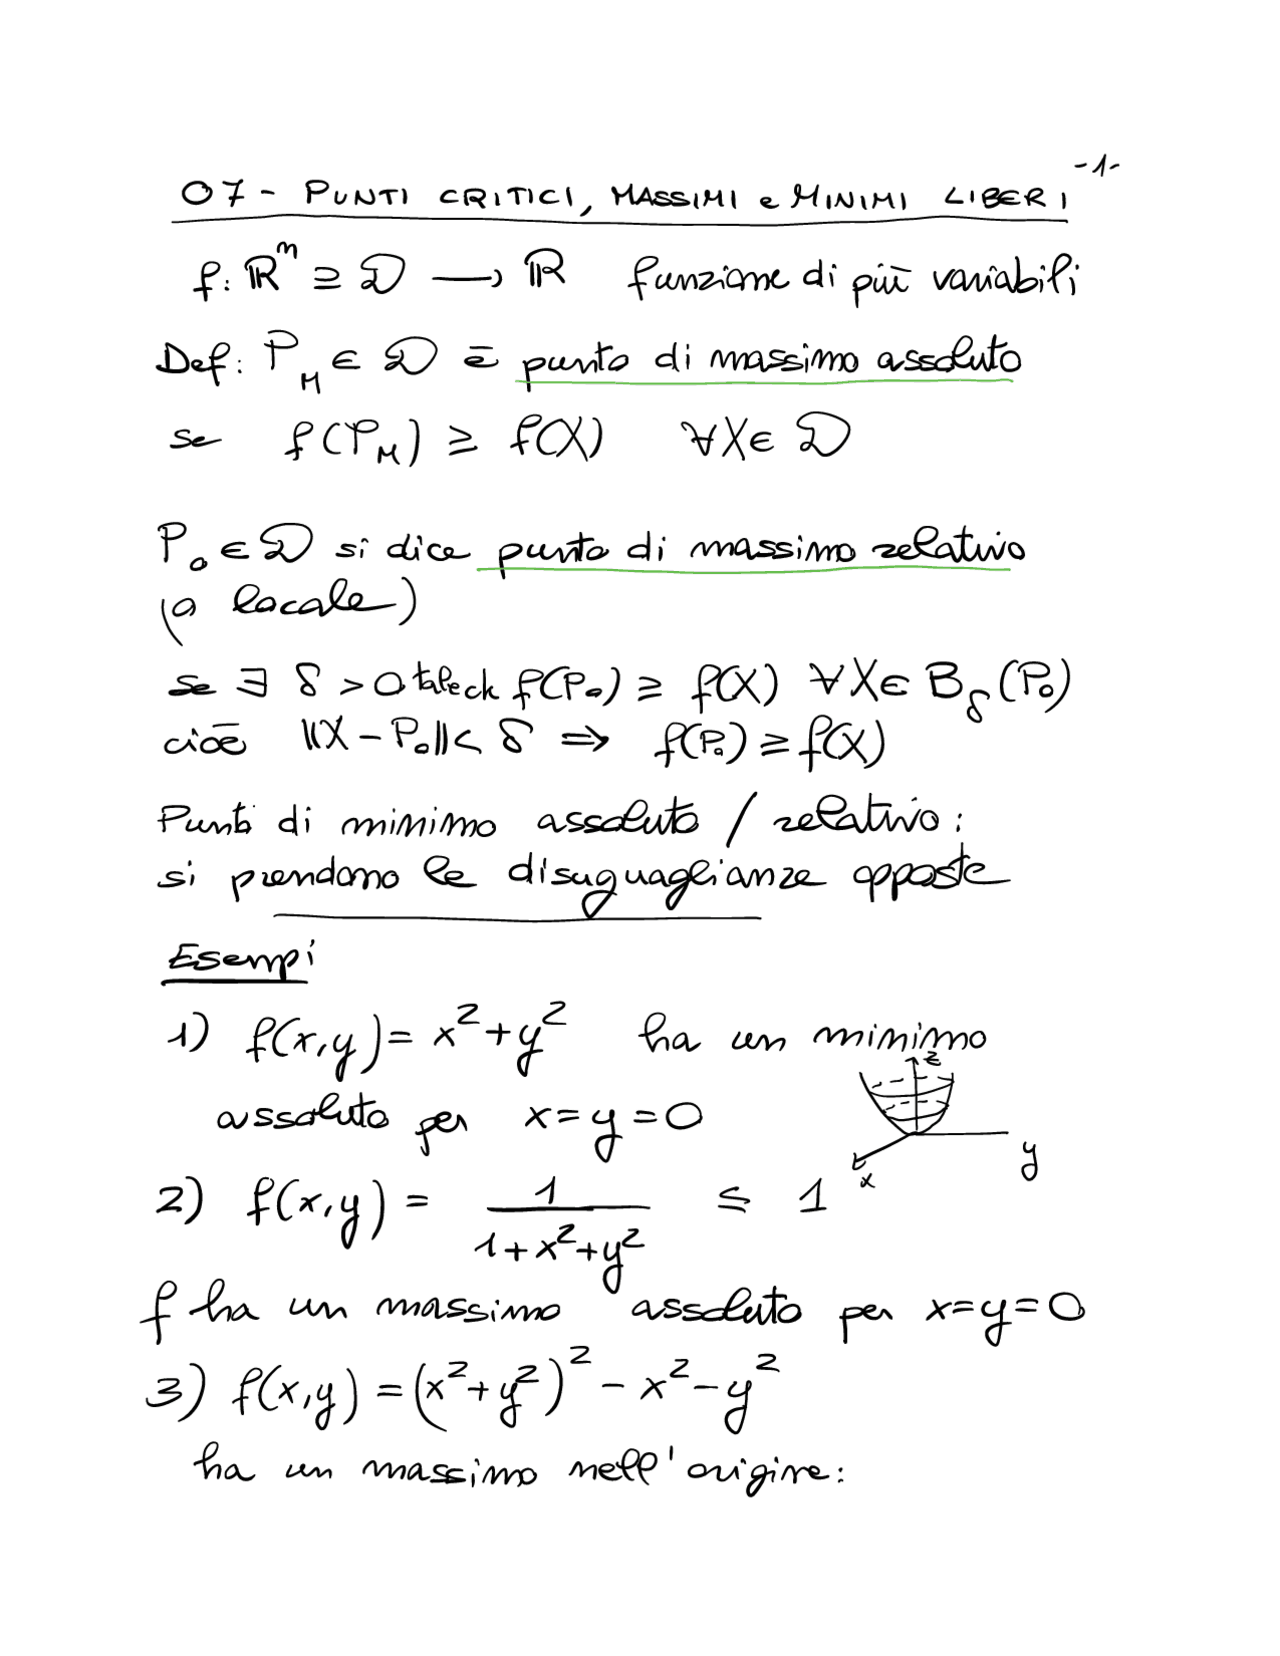 -1-
07 - PUNTI CRITICI, MASSIMI e MINIMI LIBERI
f: ℝⁿ ⊇ 𝒟 ⟶ ℝ funzione di più variabili
Def: P_M ∈ 𝒟 è punto di massimo assoluto
se f(P_M) ≥ f(X) ∀X ∈ 𝒟
P₀ ∈ 𝒟 si dice punto di massimo relativo
(o locale)
se ∃ δ > 0 tale ch f(P₀) ≥ f(X) ∀X ∈ B_δ(P₀)
cioè ||X - P₀|| < δ ⇒ f(P₀) ≥ f(X)
Punti di minimo assoluto / relativo:
si prendono le disuguaglianze opposte
Esempi
1) f(x,y) = x² + y² ha un minimo
z
assoluto per x = y = 0
y
x
2) f(x,y) = 1/(1+x²+y²) ≤ 1
f ha un massimo assoluto per x=y=0
3) f(x,y) = (x²+y²)² - x² - y²
ha un massimo nell'origine: